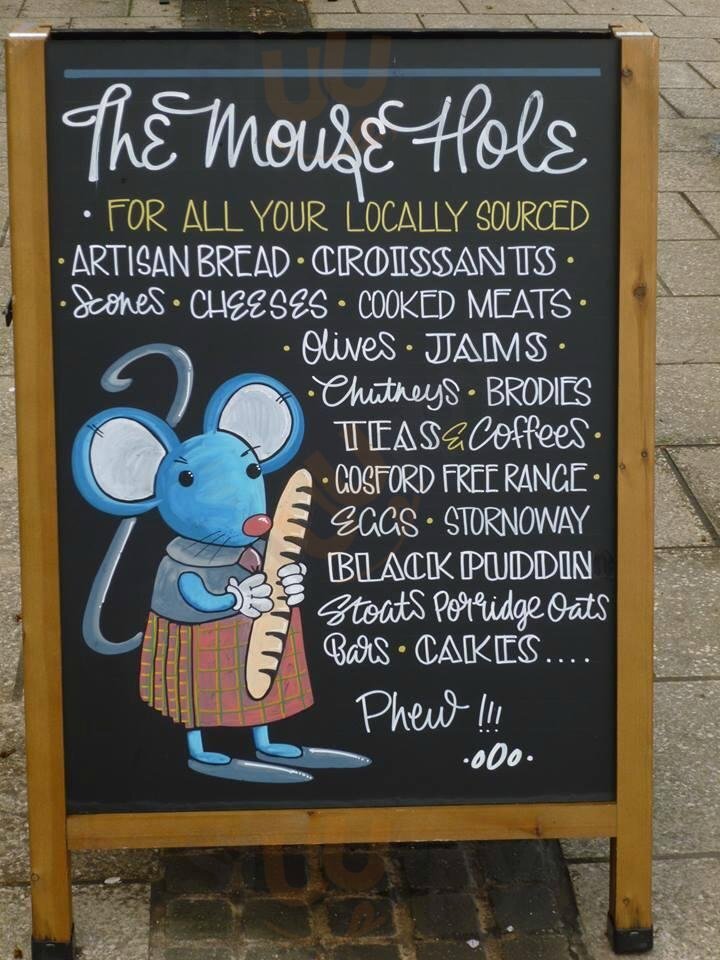 The Mouse Hole
• FOR ALL YOUR LOCALLY SOURCED
• ARTISAN BREAD • CROISSANTS •
• Scones • CHEESES • COOKED MEATS •
• Olives • JAMS •
• Chutneys • BRODIES
TEAS & Coffees •
• GOSFORD FREE RANGE •
EGGS • STORNOWAY
BLACK PUDDIN
Stoats Porridge Oats
Bars • CAKES ....
Phew !!!
•oOo•